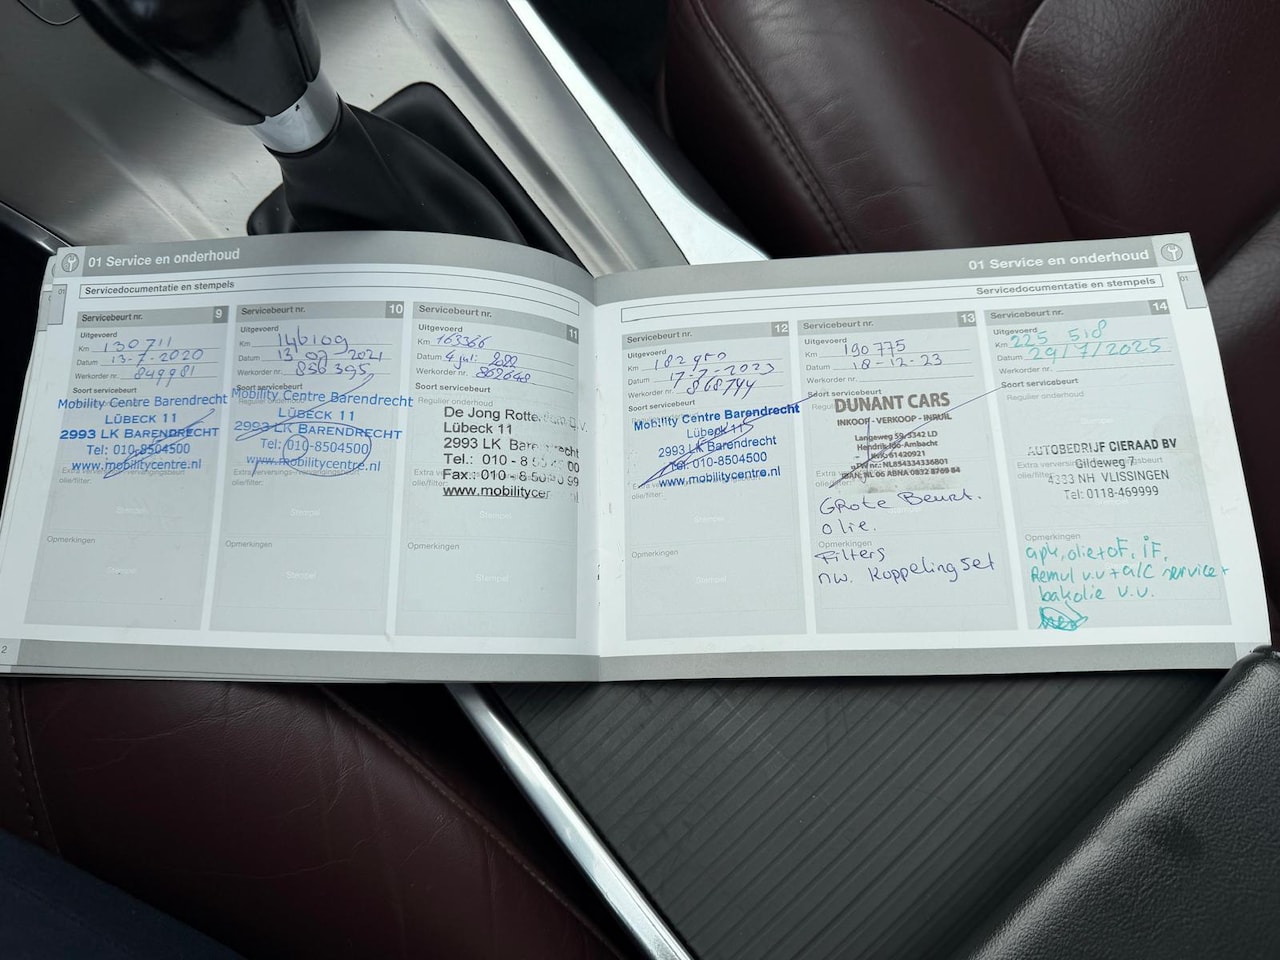 01 Service en onderhoud
Servicedocumentatie en stempels
Servicebeurt nr. 9
Uitgevoerd
Km 130711
Datum 13-7-2020
Werkorder nr. 849981
Soort servicebeurt
Mobility Centre Barendrecht
LÜBECK 11
2993 LK BARENDRECHT
Tel: 010-8504500
www.mobilitycentre.nl
olie/filter:
Stempel
Opmerkingen
Stempel
Servicebeurt nr. 10
Uitgevoerd
Km 146109
Datum 13 07 2021
Werkorder nr. 856395
Soort servicebeurt
Mobility Centre Barendrecht
LÜBECK 11
2993 LK BARENDRECHT
Tel: 010-8504500
www.mobilitycentre.nl
olie/filter:
Stempel
Opmerkingen
Stempel
Servicebeurt nr. 11
Uitgevoerd
Km 163366
Datum 4 juli 2022
Werkorder nr. 862648
Soort servicebeurt
De Jong Rotterdam B.V.
Lübeck 11
2993 LK Barendrecht
Tel.: 010 - 8 50 00
Fax.: 010 - 8 50 99
www.mobilitycer
Stempel
Opmerkingen
Stempel
2
01 Service en onderhoud
01
Servicedocumentatie en stempels
Servicebeurt nr. 12
Uitgevoerd
Km 182950
Datum 17-7-2023
Werkorder nr. 868744
Soort servicebeurt
Mobility Centre Barendrecht
Lübeck 11
2993 LK Barendrecht
Tel: 010-8504500
www.mobilitycentre.nl
olie/filter:
Stempel
Opmerkingen
Servicebeurt nr. 13
Uitgevoerd
Km 190775
Datum 18-12-23
Werkorder nr.
Soort servicebeurt
DUNANT CARS
INKOOP - VERKOOP - INRUIL
Langeweg 59, 3342 LD
Hendrik-Ido-Ambacht
KvK: 61420921
BTW nr.: NL854334336B01
IBAN: NL 06 ABNA 0832 8769 84
Grote Beurt.
olie.
Opmerkingen
Filters
nw. Koppeling set
Servicebeurt nr. 14
Uitgevoerd
Km 225 518
Datum 29/7/2025
Werkorder nr.
Soort servicebeurt
Regulier onderhoud
AUTOBEDRIJF CIERAAD BV
Gildeweg 7
4383 NH VLISSINGEN
Tel: 0118-469999
Stempel
Opmerkingen
apk, olie+oF, iF,
Remul v.v + a/c service +
bakolie v.v.